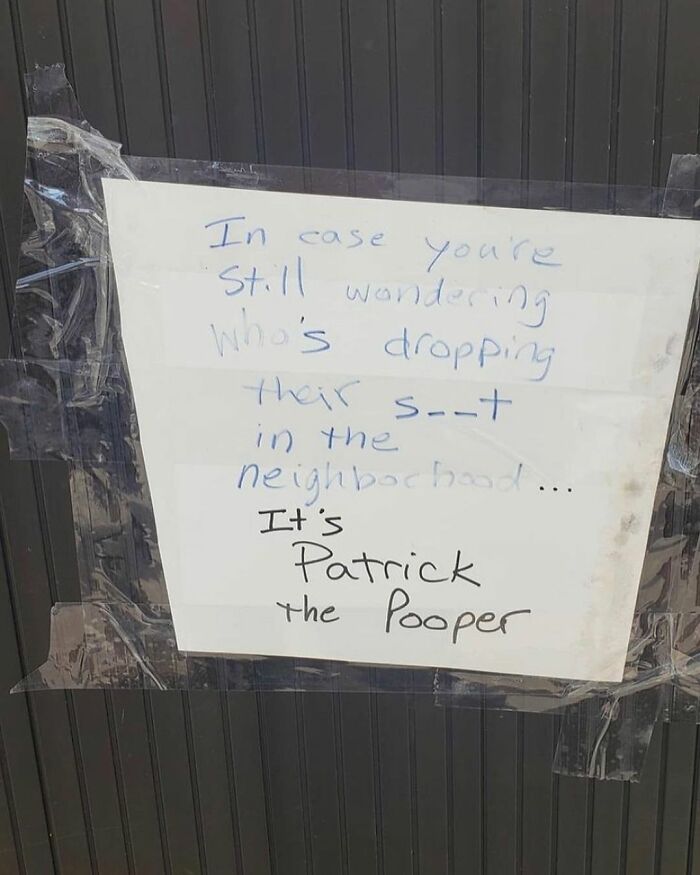 In case you're
Still wondering
who's dropping
their s--t
in the
neighborhood...
It's
Patrick
the Pooper